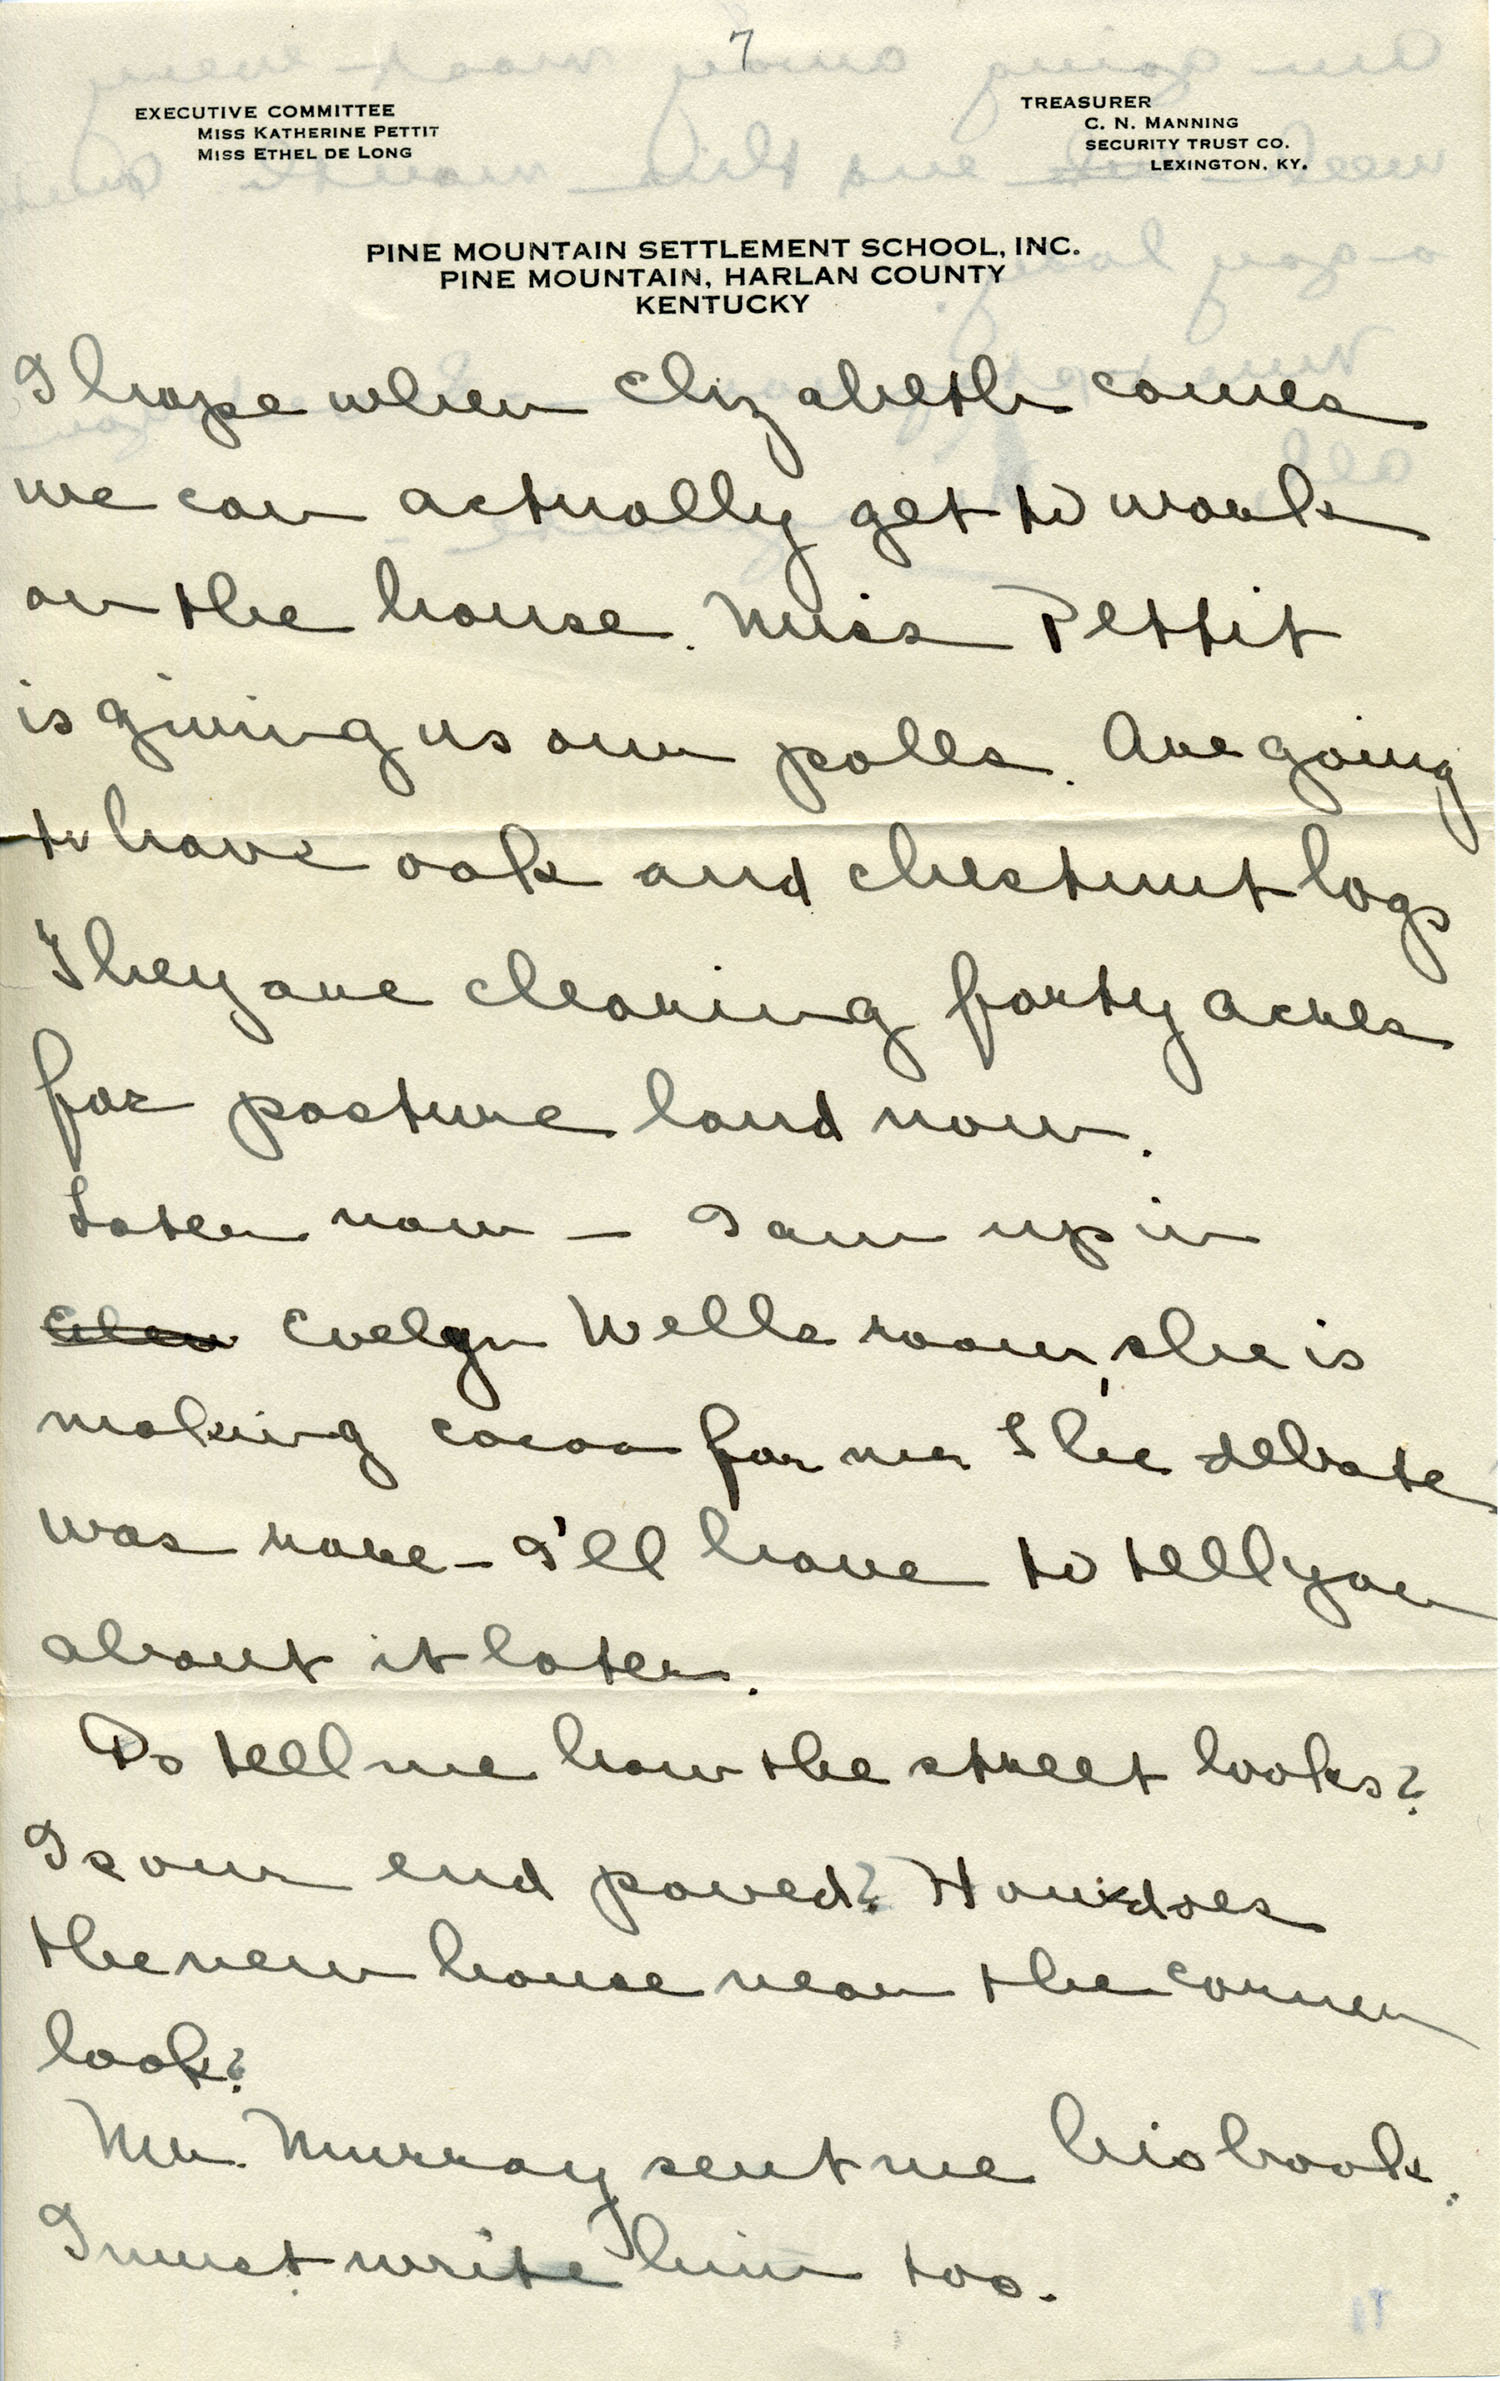 7
EXECUTIVE COMMITTEE
MISS KATHERINE PETTIT
MISS ETHEL DE LONG
TREASURER
C. N. MANNING
SECURITY TRUST CO.
LEXINGTON, KY.
PINE MOUNTAIN SETTLEMENT SCHOOL, INC.
PINE MOUNTAIN, HARLAN COUNTY
KENTUCKY
I hope when Elizabeth comes
we can actually get to work
on the house. Miss Pettit
is giving us our polls. Are going
to have oak and chestnut logs
They are clearing forty acres
for pasture land now.
Later now – I am up in
Evelyn Wells room, she is
making cocoa for me. The debate
was rare – I'll have to tell you
about it later.
Do tell me how the street looks?
Is our end paved? How does
the new house near the corner
look?
Mr. Murray sent me his book.
I must write him too.